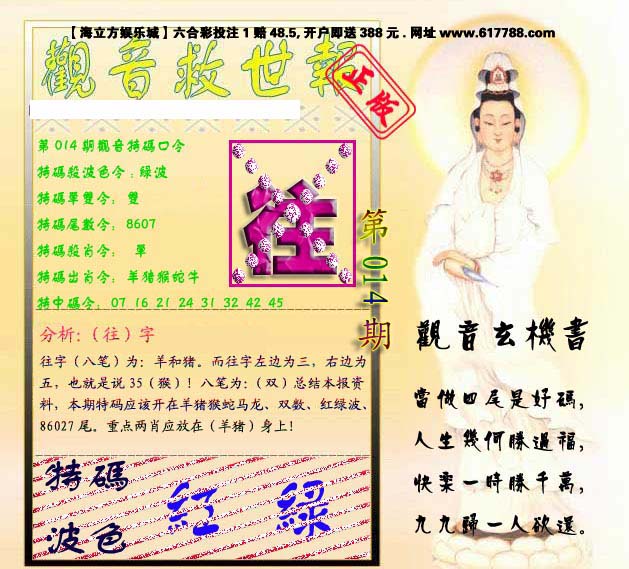 【海立方娱乐城】六合彩投注1赔48.5,开户即送388元.网址 www.617788.com
觀音救世報
正版
第014期觀音特碼口令
特碼殺波色令:綠波
特碼單雙令: 雙
特碼尾數令: 8607
特碼殺肖令: 單
特碼出肖令: 羊猪猴蛇牛
特中碼令: 07 16 21 24 31 32 42 45
往
第014期
分析:(往)字
往字(八笔)为:羊和猪。而往字左边为三,右边为
五,也就是说35(猴)!八笔为:(双)总结本报资
料,本期特码应该开在羊猪猴蛇马龙、双数、红绿波、
86027尾。重点两肖应放在(羊猪)身上!
特碼
波色
紅 綠
觀音玄機書
當做四尾是好碼,
人生幾何勝過福,
快樂一時勝千萬,
九九歸一人欲還。